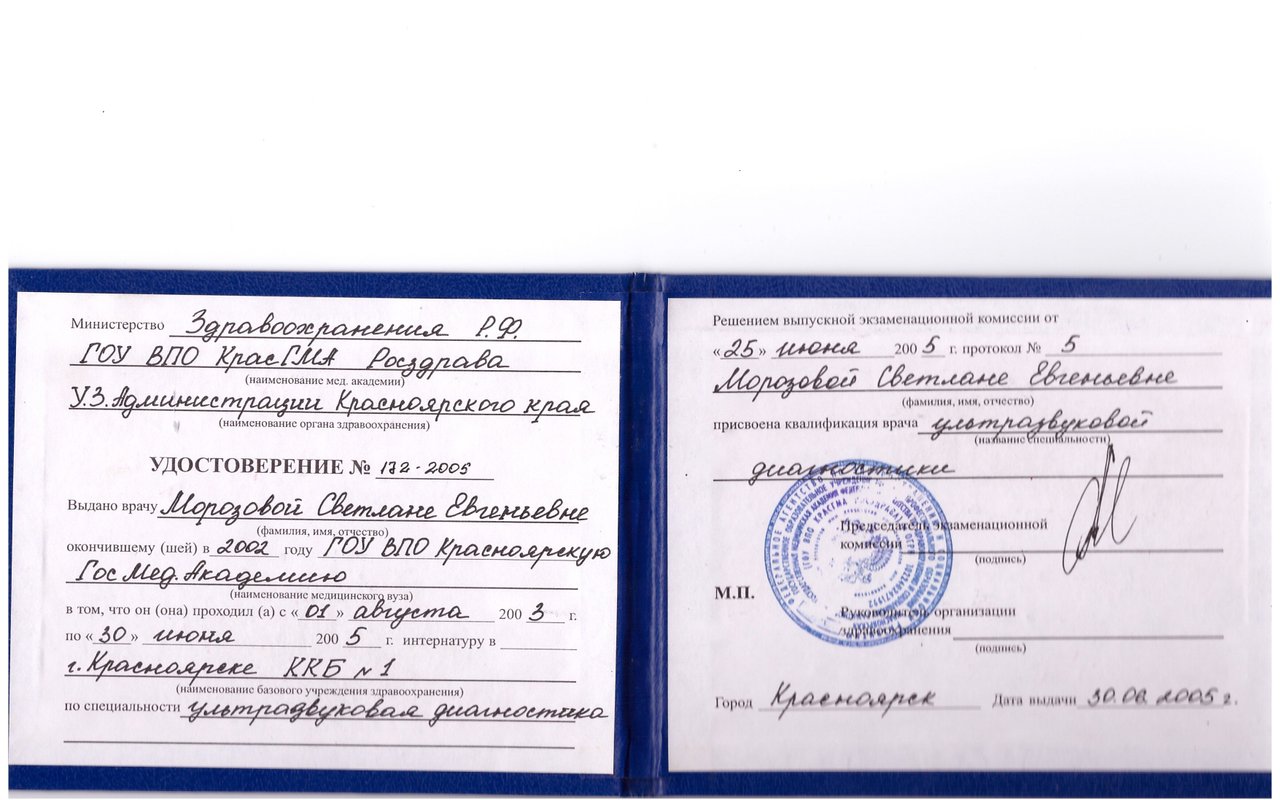 Министерство Здравоохранения Р.Ф.
ГОУ ВПО КрасГМА Росздрава
(наименование мед. академии)
У.З. Администрации Красноярского края
(наименование органа здравоохранения)
УДОСТОВЕРЕНИЕ № 172-2005
Выдано врачу Морозовой Светлане Евгеньевне
(фамилия, имя, отчество)
окончившему (шей) в 2002 году ГОУ ВПО Красноярскую
Гос Мед. Академию
(наименование медицинского вуза)
в том, что он (она) проходил (а) с «01» августа 2003 г.
по «30» июня 2005 г. интернатуру в
г. Красноярске ККБ №1
(наименование базового учреждения здравоохранения)
по специальности ультразвуковая диагностика
Решением выпускной экзаменационной комиссии от
«25» июня 2005 г. протокол № 5
Морозовой Светлане Евгеньевне
(фамилия, имя, отчество)
присвоена квалификация врача ультразвуковой
(название специальности)
диагностики
Председатель экзаменационной
комиссии
(подпись)
М.П.
Руководитель организации
здравоохранения
(подпись)
Город Красноярск Дата выдачи 30.06.2005 г.